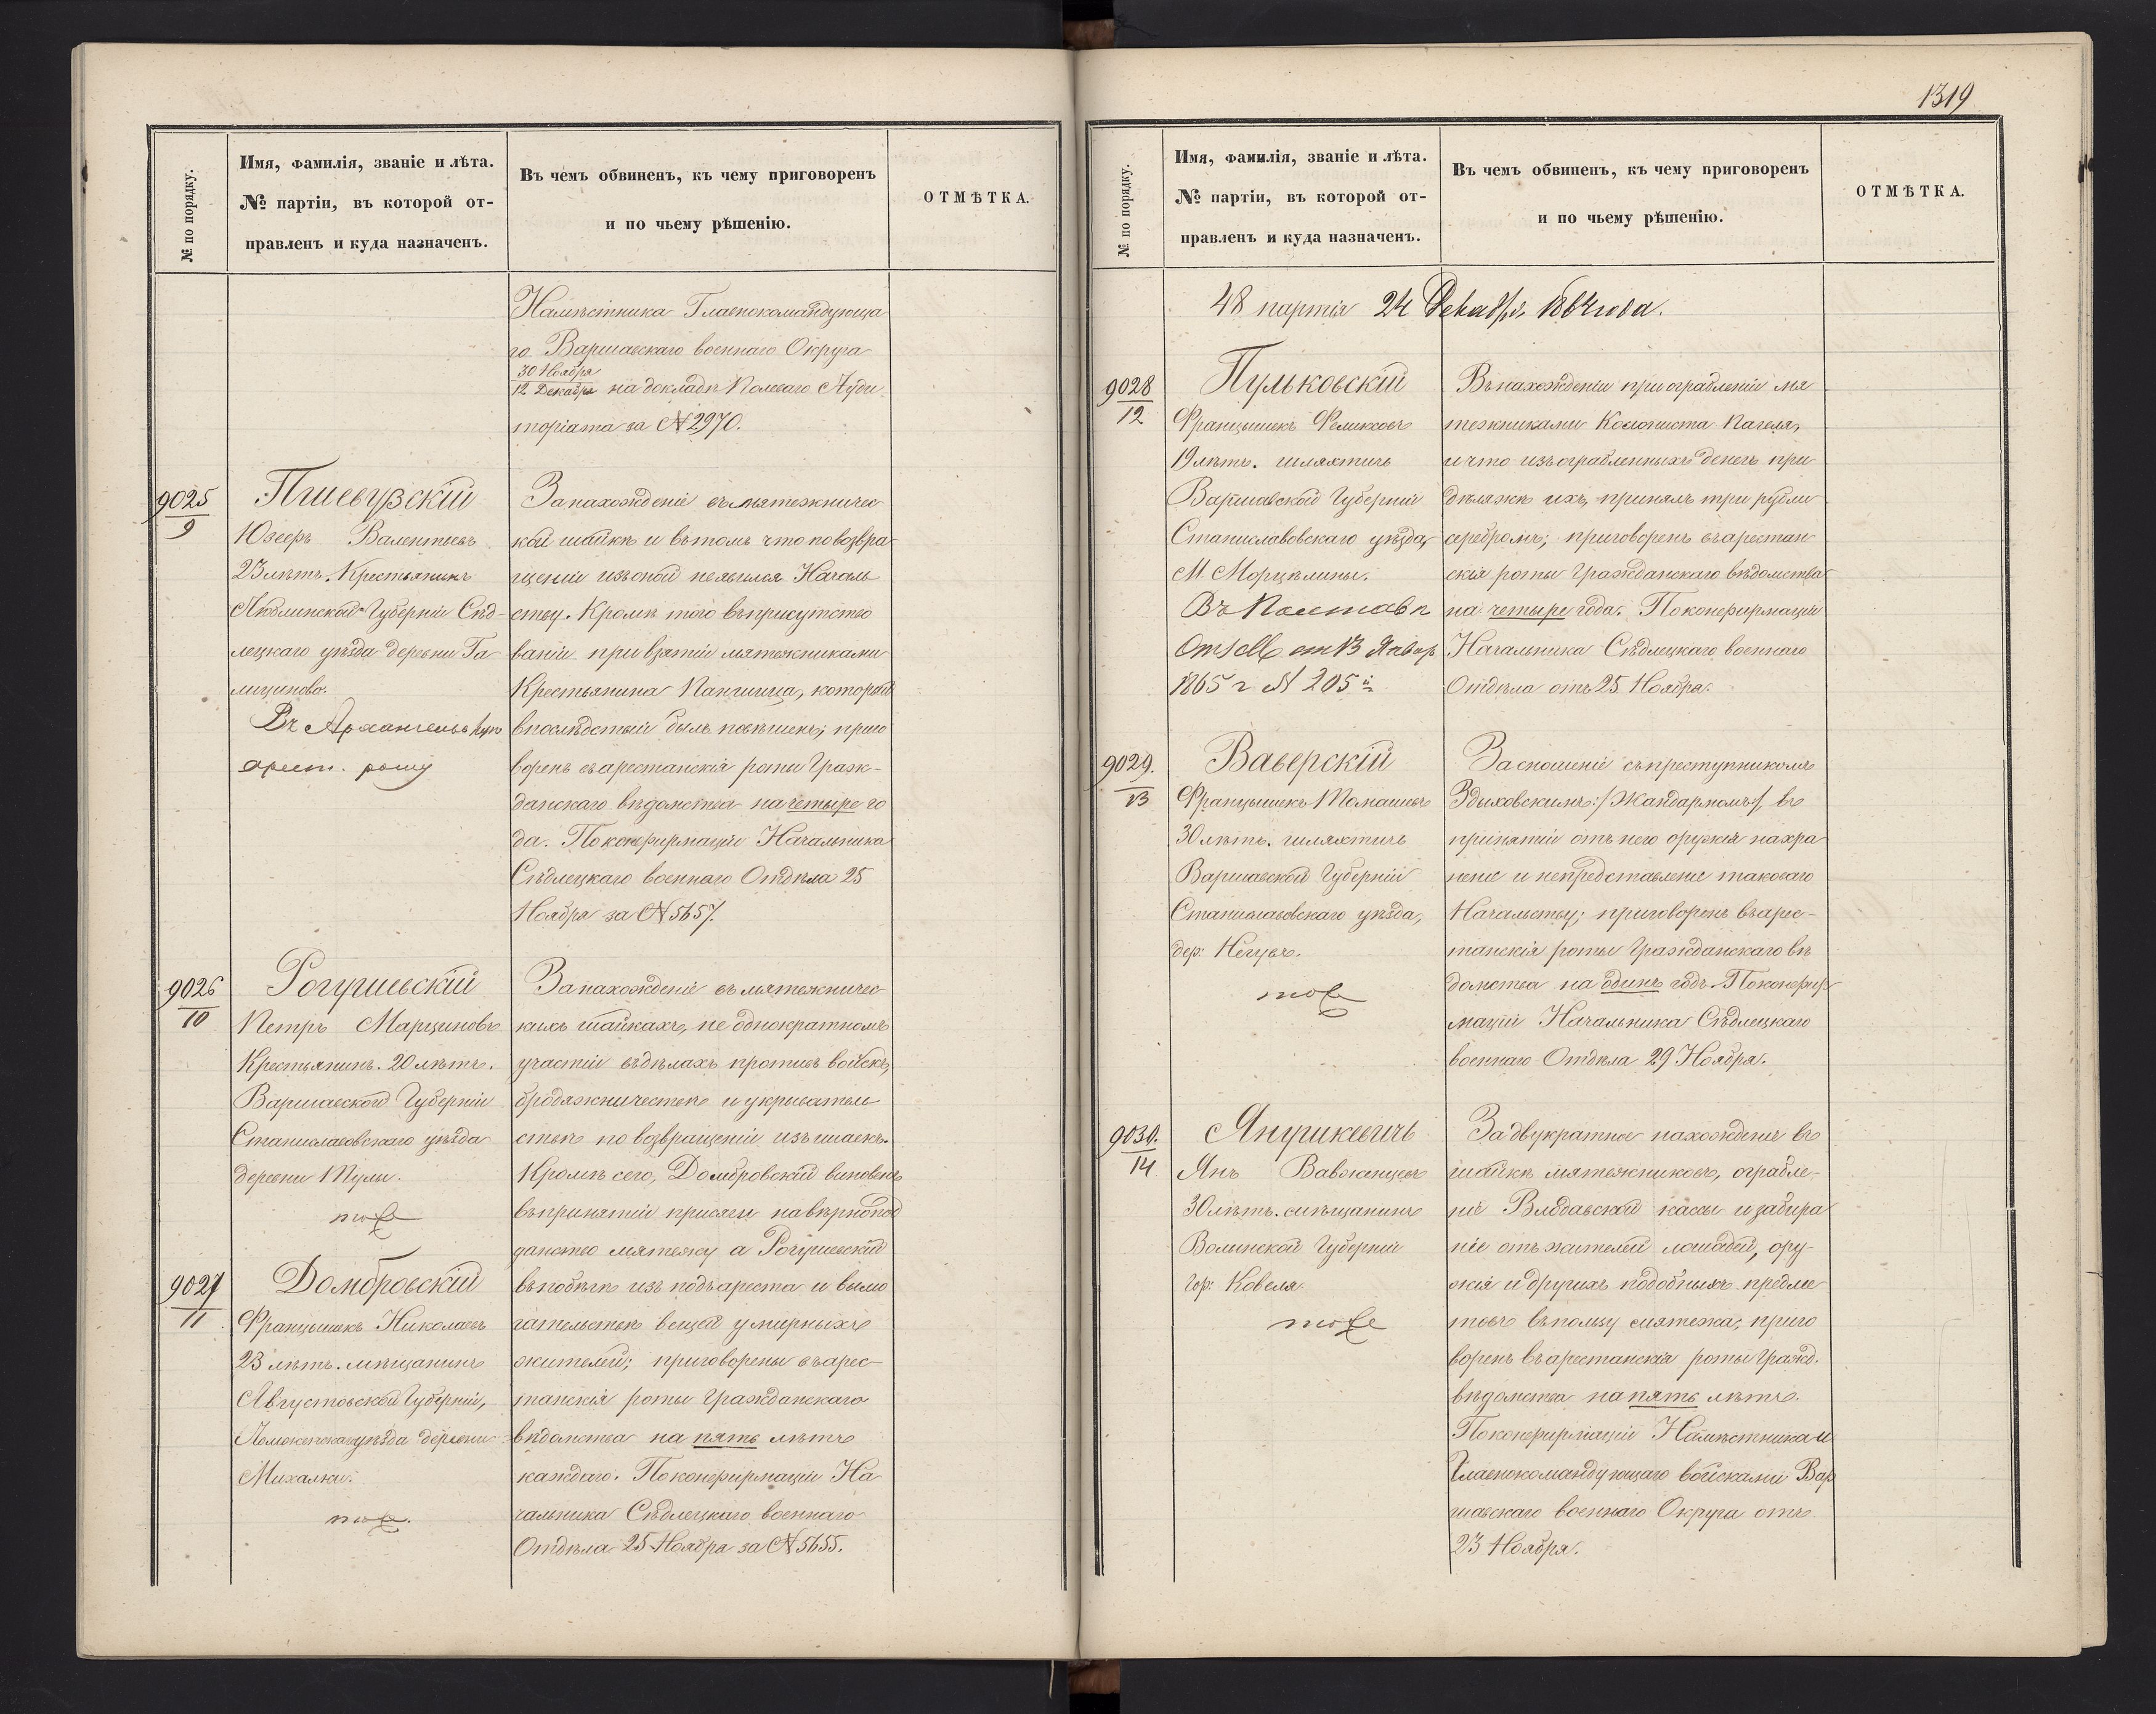 № по порядку.
Имя, фамилія, званіе и лѣта.
№ партіи, въ которой от-
правленъ и куда назначенъ.
Въ чемъ обвиненъ, къ чему приговоренъ
и по чьему рѣшенію.
ОТМѢТКА.
Намѣстника Главнокомандующа
го Варшавскаго военнаго Округа
30 Ноября
12 Декабря на докладѣ Полеваго Ауди
торіата за № 2970.
9025
9
Пшевузскій
Юзефъ Валентьевъ
23 лѣтъ. Крестьянинъ
Люблинской Губерніи Сѣд-
лецкаго уѣзда деревни Га
Въ Архангельскую
арест. роту
За нахожденіе въ мятежничес
кой шайкѣ и въ томъ что по возвра
щеніи изъ оной не явился Началь
ству. Кромѣ того въ присутство
ваніи при взятіи мятежниками
Крестьянина который
впослѣдствіи былъ повѣшенъ; приго
воренъ въ арестанскія роты Граж-
данскаго вѣдомства на четыре го
да. По конфирмаціи Начальника
Сѣдлецкаго военнаго Отдѣла 25
Ноября за № 5657.
9026
10
Рогушевскій
Петръ Марциновъ
Крестьянинъ. 20 лѣтъ.
Варшавской Губерніи
Станиславовскаго уѣзда
деревни Тулы.
тоже
За нахожденіе въ мятежничес
кихъ шайкахъ, не однократномъ
участіи въ дѣлахъ противъ войскъ,
бродяжничествѣ и укрыватель
ствѣ по возвращеніи изъ шаекъ.
Кромѣ сего, Домбровскій виновенъ
въ принятіи присяги на вѣрнопод
данство мятежу а Рогушевскій
въ побѣгѣ изъ подъ ареста и вымо
гательствѣ вещей у мирныхъ
жителей; приговорены въ арес-
танскія роты Гражданскаго
вѣдомства на пять лѣтъ
каждаго. По конфирмаціи На
чальника Сѣдлецкаго военнаго
Отдѣла 25 Ноября за № 5655.
9027
11
Домбровскій
Францышекъ Николаевъ
23 лѣтъ. мѣщанинъ
Августовской Губерніи,
уѣзда деревни
Михалки.
тоже.
1319
№ по порядку.
Имя, фамилія, званіе и лѣта.
№ партіи, въ которой от-
правленъ и куда назначенъ.
Въ чемъ обвиненъ, къ чему приговоренъ
и по чьему рѣшенію.
ОТМѢТКА.
48 партія 24 Декабря 1864 года.
9028
12
Пульковскій
Францышекъ Феликсовъ
19 лѣтъ. шляхтичъ
Варшавской Губерніи
Станиславовскаго уѣзда,
М. Морцѣлины.
Въ Полтавѣ
от 13 Января
1865 г № 205
Въ нахожденіи при ограбленіи мя
тежниками Колониста Пагеля,
и что изъ ограбленныхъ денегъ при
дѣляжѣ ихъ, принялъ три рубли
серебромъ; приговоренъ въ арестан
скія роты Гражданскаго вѣдомства
на четыре года. По конфирмаціи
Начальника Сѣдлецкаго военнаго
Отдѣла отъ 25 Ноября.
9029.
13
Ваверскій
Францышекъ Томашевъ
30 лѣтъ. шляхтичъ
Варшавской Губерніи
Станиславовскаго уѣзда,
дер:
тоже
За сношеніе съ преступникомъ
Здыховскимъ :/Жандармомъ/, въ
принятіи отъ него оружія на хра
неніе и непредставленіе таковаго
Начальству; приговоренъ въ арес-
танскія роты Гражданскаго вѣ
домства на одинъ годъ. По конфир
маціи Начальника Сѣдлецкаго
военнаго Отдѣла 29 Ноября.
9030.
14
Янушкевичъ
Янъ Вавженцевъ
30 лѣтъ. мѣщанинъ
Волынской Губерніи
гор: Ковеля
тоже
За двукратное нахожденіе въ
шайкѣ мятежниковъ, ограбле-
ніе Влодавской кассы и забира
ніе отъ жителей лошадей, ору-
жія и другихъ подобныхъ предме
товъ въ пользу мятежа; приго
воренъ въ арестанскія роты Гражд.
вѣдомства на пять лѣтъ.
По конфирмаціи Намѣстника и
Главнокомандующаго войсками Вар
шавскаго военнаго Округа отъ
23 Ноября.